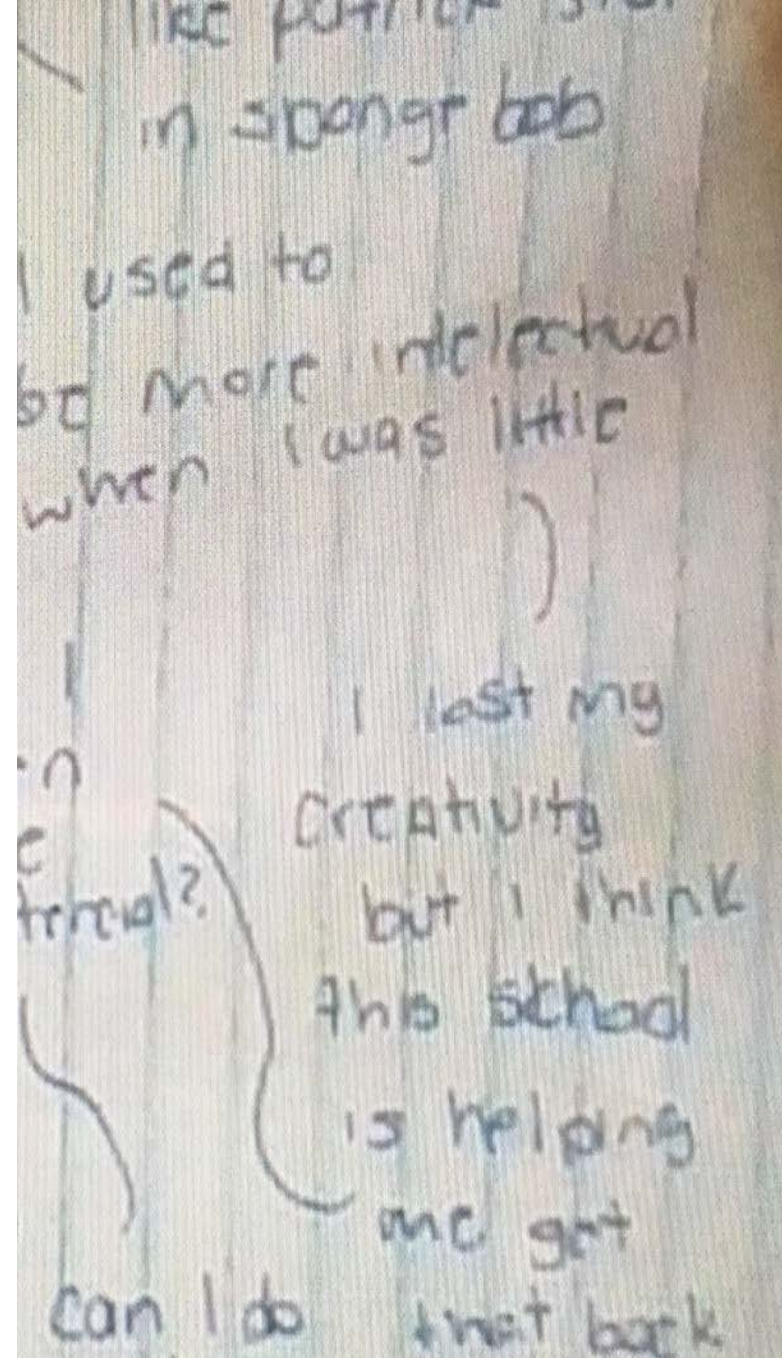 like patrick star
in spongr bob
I used to
be more intelectual
when I was little
I lost my
creativity
but i think
this school
is helping
me get
that back
can I do